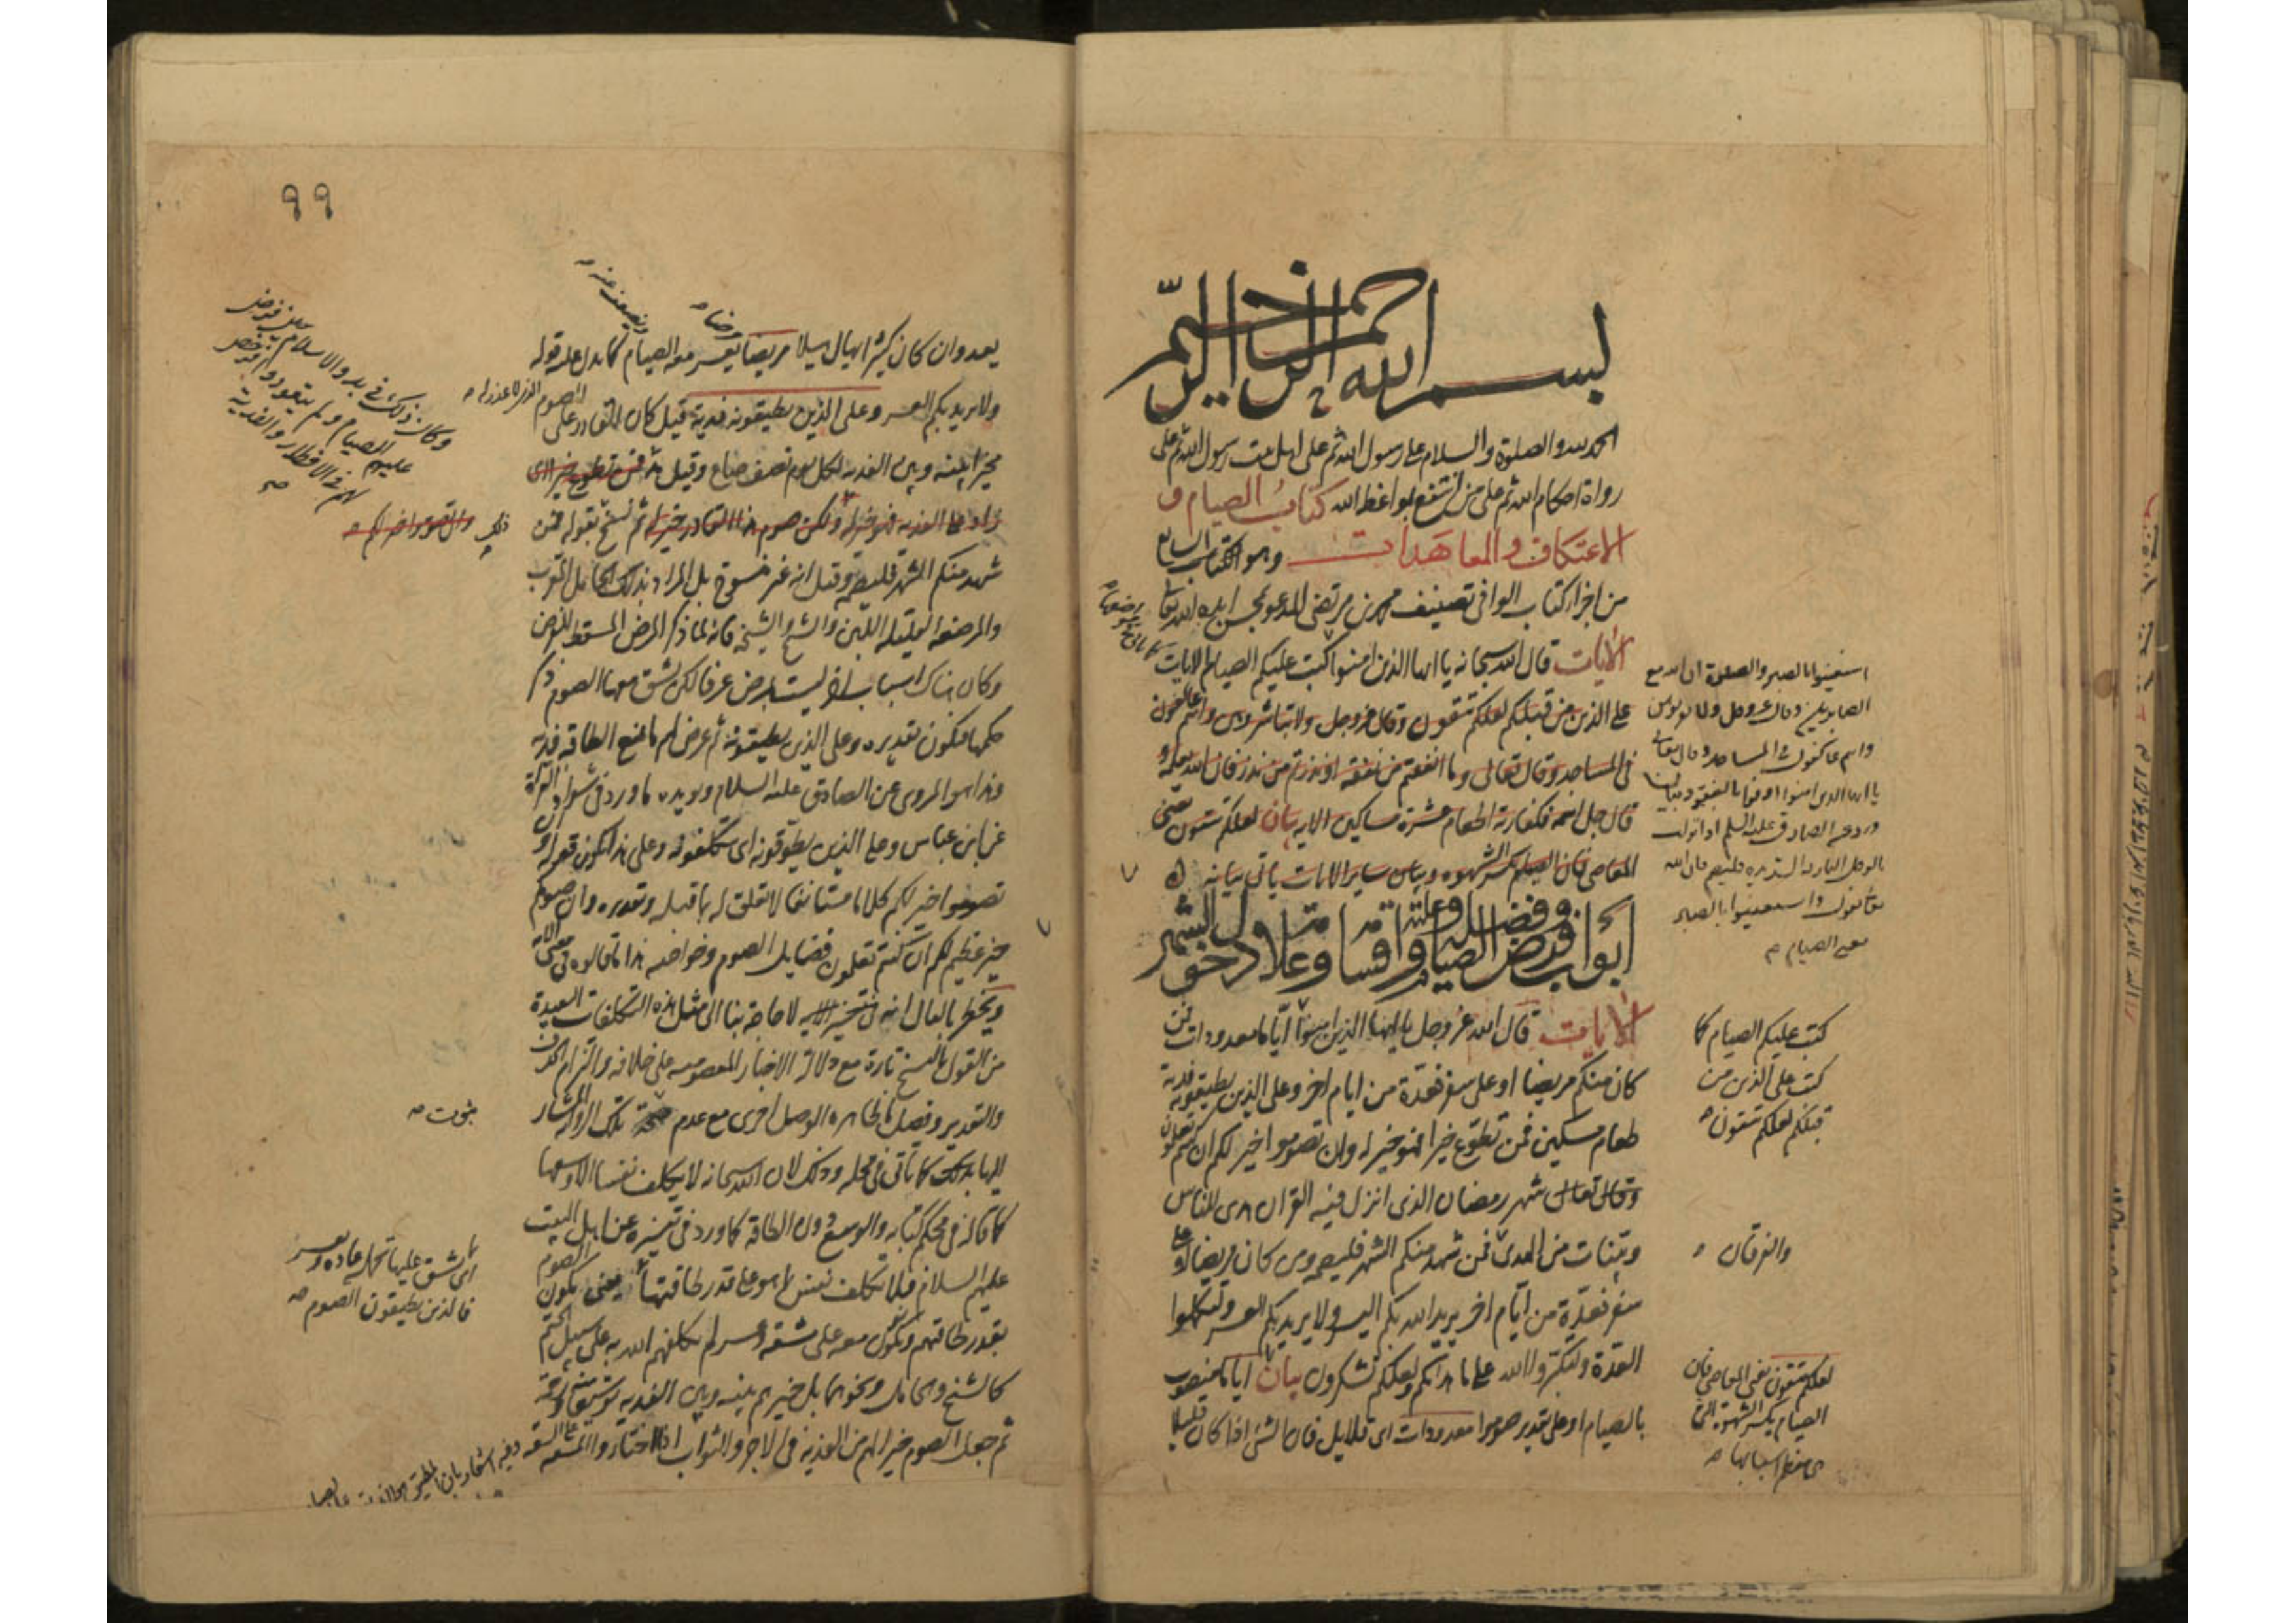 بسم الله الرحمن الرحيم
الحمد لله والصلوة والسلام على رسول الله ثم على اهل بيت رسول الله ثم على
رواة احكام الله ثم على من انتفع بمواعظ الله كتاب الصيام و
الاعتكاف والمعاهدات وهو الكتاب السابع
من اجزاء كتاب الوافي تصنيف محمد بن مرتضى المدعو بمحسن ايده الله تعالى
الآيات قال الله سبحانه يا ايها الذين امنوا كتب عليكم الصيام الايات
على الذين من قبلكم لعلكم تتقون وقال عز وجل ولا تباشروهن وانتم عاكفون
في المساجد وقال تعالى وما انفقتم من نفقة او نذرتم من نذر فان الله يعلمه و
قال جل اسمه فكفارته اطعام عشرة مساكين الاية بيان لعلكم تتقون يعني
المعاصي فان الصيام يكسر الشهوة وبيان ساير الايات ياتي بيانه
ابواب فرض الصيام وفضله وعلته واقسامه وعلامة دخول الشهر
الآيات قال الله عز وجل يا ايها الذين امنوا اياما معدودات فمن
كان منكم مريضا او على سفر فعدة من ايام اخر وعلى الذين يطيقونه فدية
طعام مسكين فمن تطوع خيرا فهو خير له وان تصوموا خير لكم ان كنتم تعلمون
وقال تعالى شهر رمضان الذي انزل فيه القران هدى للناس
وبينات من الهدى فمن شهد منكم الشهر فليصمه ومن كان مريضا او على
سفر فعدة من ايام اخر يريد الله بكم اليسر ولا يريد بكم العسر ولتكملوا
العدة ولتكبروا الله على ما هداكم ولعلكم تشكرون بيان اياما منصوب
بالصيام او على تقدير صوموا معدودات اى قلايل فان الشئ اذا كان قليلا
استعينوا بالصبر والصلوة ان الله مع
الصابرين وقال عز وجل ولا تباشروهن
وانتم عاكفون في المساجد وقال تعالى
يا ايها الذين امنوا اوفوا بالعقود بيان
ورد عن الصادق عليه السلم اذا نزلت
بالرجل النازلة الشديدة فليصم فان الله
تعالى يقول واستعينوا بالصبر
يعني الصيام
كتب عليكم الصيام كما
كتب على الذين من
قبلكم لعلكم تتقون
والفرقان
لعلكم تتقون يعني المعاصي فان
الصيام يكسر الشهوة التي
هي معظم اسبابها
٩٩
يعد وان كان كثيرا يهال هيلا مريضا يعسر معه الصيام كما يدل عليه قوله
ولا يريد بكم العسر وعلى الذين يطيقونه فدية قيل كان القادر على الصوم الذي لا عذر له
مخيرا بينه وبين الفدية لكل يوم نصف صاع وقيل مد فمن تطوع خيرا اى
زاد على الفدية فهو خير له ولكن صوم هذا القادر خير له ثم نسخ بقوله فمن
شهد منكم الشهر فليصمه وقيل انه غير منسوخ بل المراد بذلك الحامل المقرب
والمرضعة القليلة اللبن والشيخ والشيخة فانه لما ذكر المرض المسقط للفرض
وكان هناك اسباب اخر ليست بمرض عرفا لكن يشق معها الصوم ذكر
حكمها فيكون تقديره وعلى الذين يطيقونه ثم عرض لهم ما يمنع الطاقة فدية
وهذا هو المروي عن الصادق عليه السلام ويؤيده ما ورد في شواذ القراءة
عن ابن عباس وعلى الذين يطوقونه اى يتكلفونه وعلى هذا يكون قوله و
ان تصوموا خير لكم كلاما مستانفا لا تعلق له بما قبله وتقديره وان صومكم
خير عظيم لكم ان كنتم تعلمون فضايل الصوم وخواصه هذا ما قالوه في معنى الآية
ويخطر بالبال انه لا حاجة بنا الى مثل هذه التكلفات البعيدة
من القول بالنسخ تارة مع دلالة الاخبار المعصومية على خلافه والتزام الحذف
والتقدير وفصل ما ظاهره الوصل اخرى مع عدم ثبوت تلك الرواية المشار
اليها بذلك كما ياتي في محله وذلك لان الله سبحانه لا يكلف نفسا الا وسعها
كما قاله في محكم كتابه والوسع دون الطاقة كما ورد في تفسيره عن اهل البيت
عليهم السلام فلا تكلف نفس بما هو على قدر طاقتها يعني يكون الصوم
بقدر طاقتهم ويكون معه على مشقة وعسر لم يكلفهم الله به على سبيل الحتم
كالشيخ والحامل ونحوهما بل خيرهم بينه وبين الفدية توسيعا منه ورحمة
ثم جعل الصوم خيرا لهم من الفدية في الاجر والثواب اذا اختاروا المشقة على السعة
وكان ذلك في بدو الاسلام حين فرض
عليهم الصيام ولم يتعودوه فرخص
لهم في الافطار والفدية
ثبوت
اى يشق عليها تحمله عادة ويعسر
فالذين يطيقون الصوم